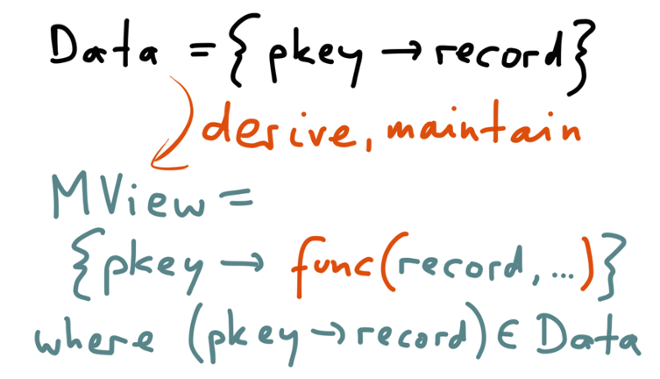 Data = {pkey → record}
derive, maintain
MView =
{pkey → func(record, ...)}
where (pkey → record) ∈ Data